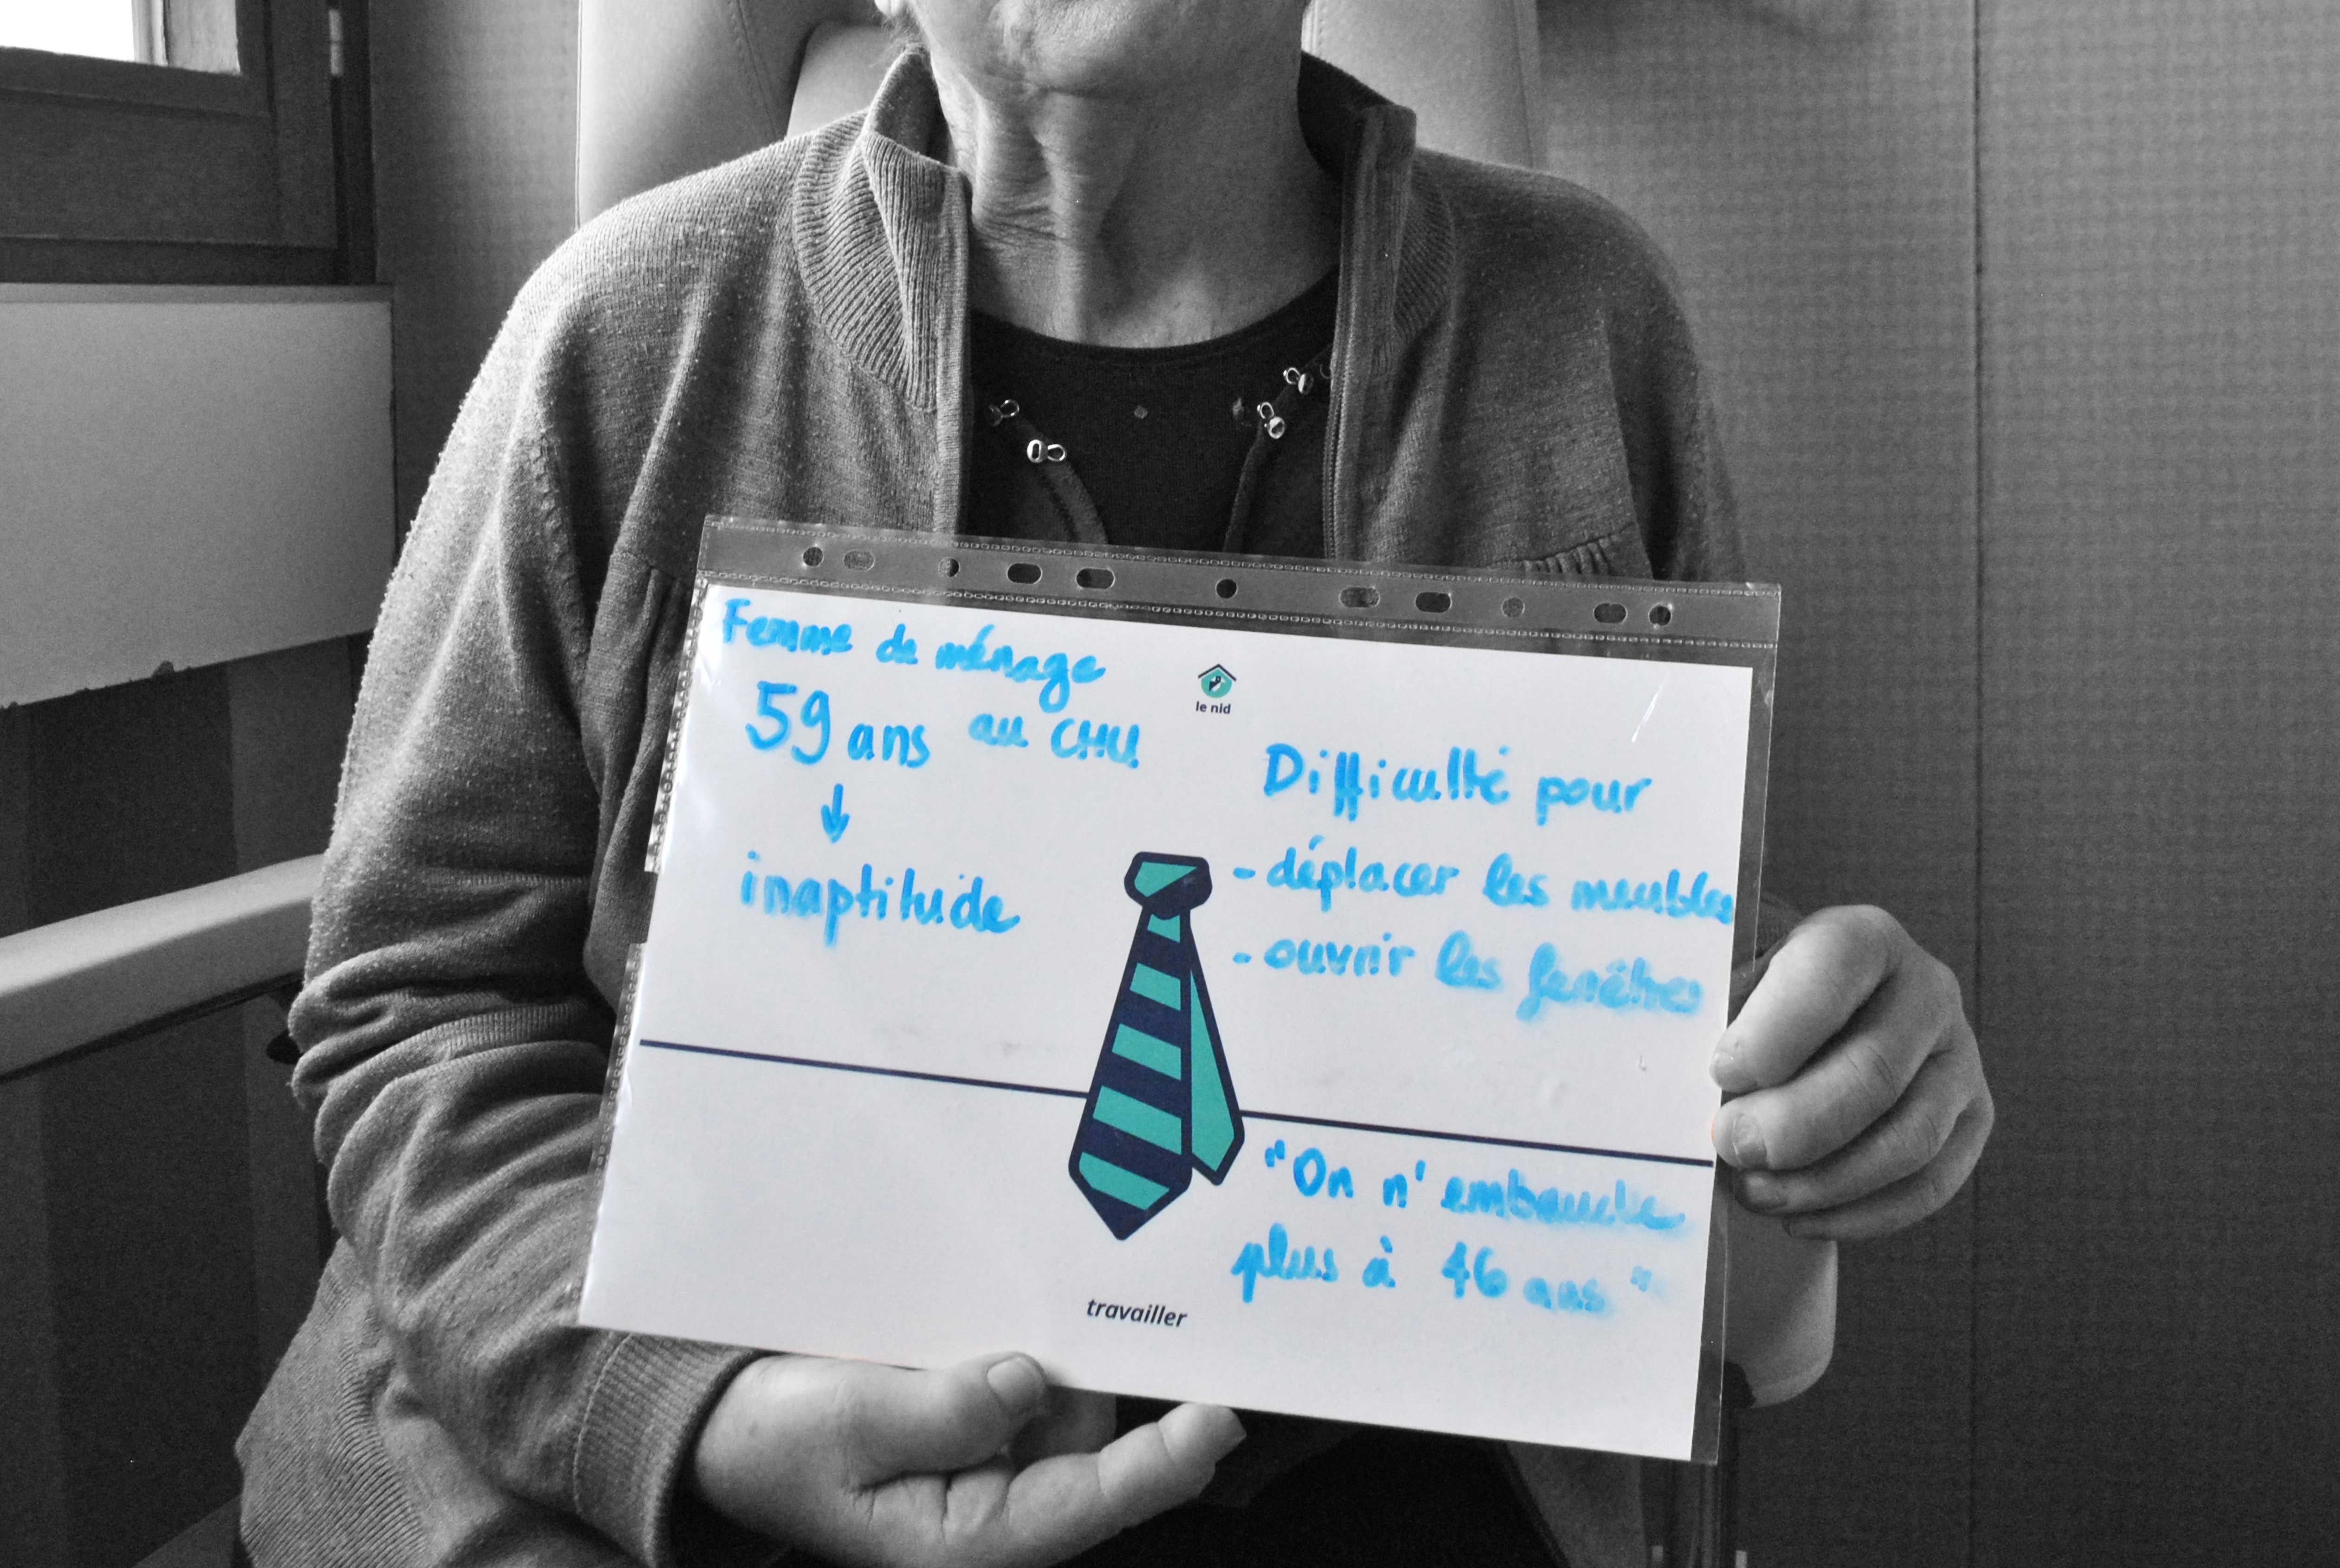 Femme de ménage
59 ans au CHU
↓
inaptitude
le nid
Difficulté pour
- déplacer les meubles
- ouvrir les fenêtres
"On n'embauche
plus à 46 ans"
travailler